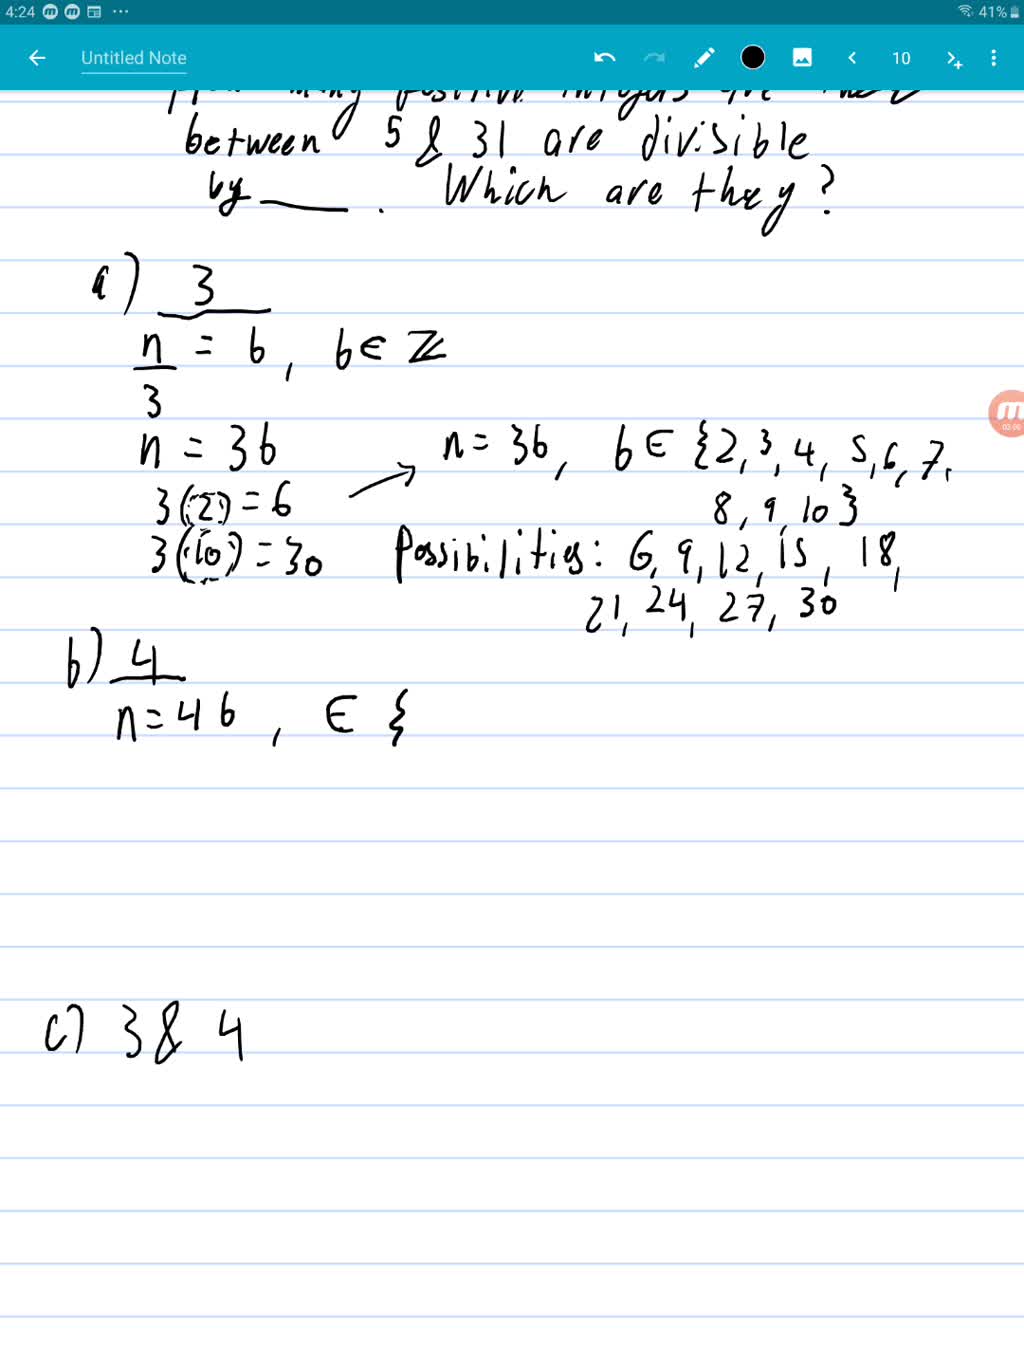 4:24
41%
Untitled Note
10
How many positive integers are there
between 5 & 31 are divisible
by ____. Which are they?
a) 3
n/3 = b, b ∈ ℤ
n = 3b
3(2) = 6
3(10) = 30
n = 3b, b ∈ {2, 3, 4, 5, 6, 7,
8, 9, 10}
Possibilities: 6, 9, 12, 15, 18,
21, 24, 27, 30
b) 4
n = 4b, ∈ {
c) 3 & 4